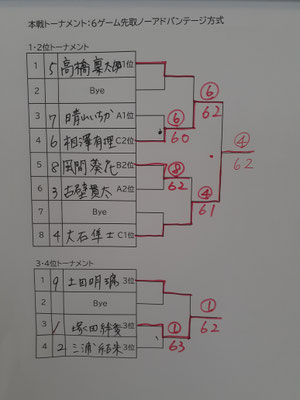 本戦トーナメント:6ゲーム先取ノーアドバンテージ方式
1・2位トーナメント
1 5 高橋 1位
2 Bye
3 7 晴山いちか A1位
4 6 相澤有理 C2位
5 8 岡間葵 B2位
6 3 古壁貴太 A2位
7 Bye
8 4 大石隼士 C1位
⑥
60
⑧
62
⑥
62
④
61
④
62
3・4位トーナメント
1 9 土田明璃 3位
2 Bye
3 1 塚田絆愛 3位
4 2 三浦結来 3位
①
63
①
62